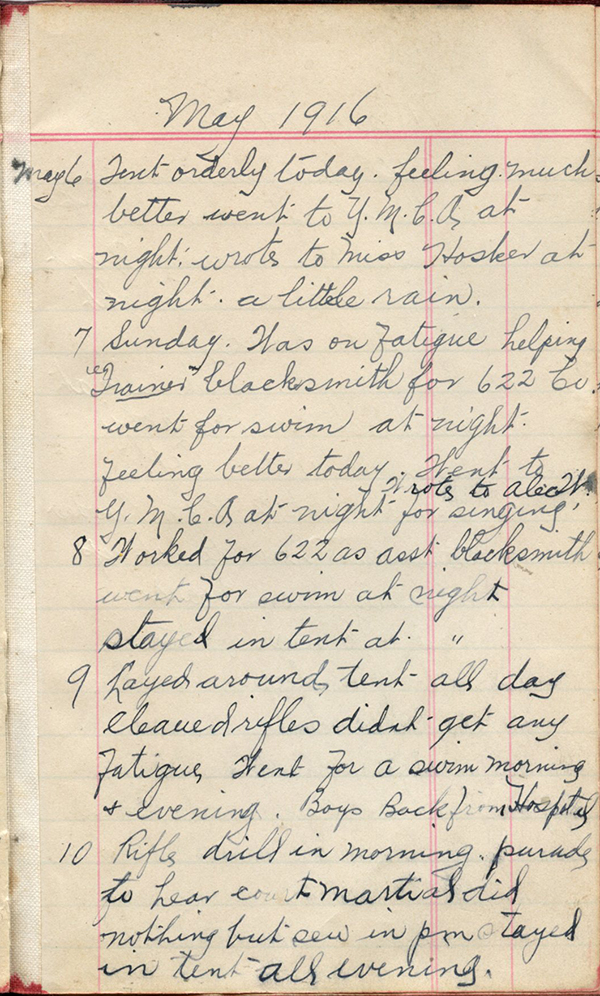 May 1916
May 6 Tent orderly today. feeling much
better went to Y.M.C.A. at
night. wrote to Miss Hosker at
night. a little rain.
7 Sunday. Was on fatigue helping
"Trainer" blacksmith for 622 Co.
went for swim at night.
feeling better today. Went to
Wrote to Alec W.
Y.M.C.A. at night for singing.
8 Worked for 622 as asst blacksmith
went for swim at night
stayed in tent at "
9 Layed around tent all day
cleaned rifles didnt get any
fatigue Went for a swim morning
+ evening. Boys Back from Hospital
10 Rifle drill in morning. parade
to hear court martial did
nothing but sew in pm stayed
in tent all evening.